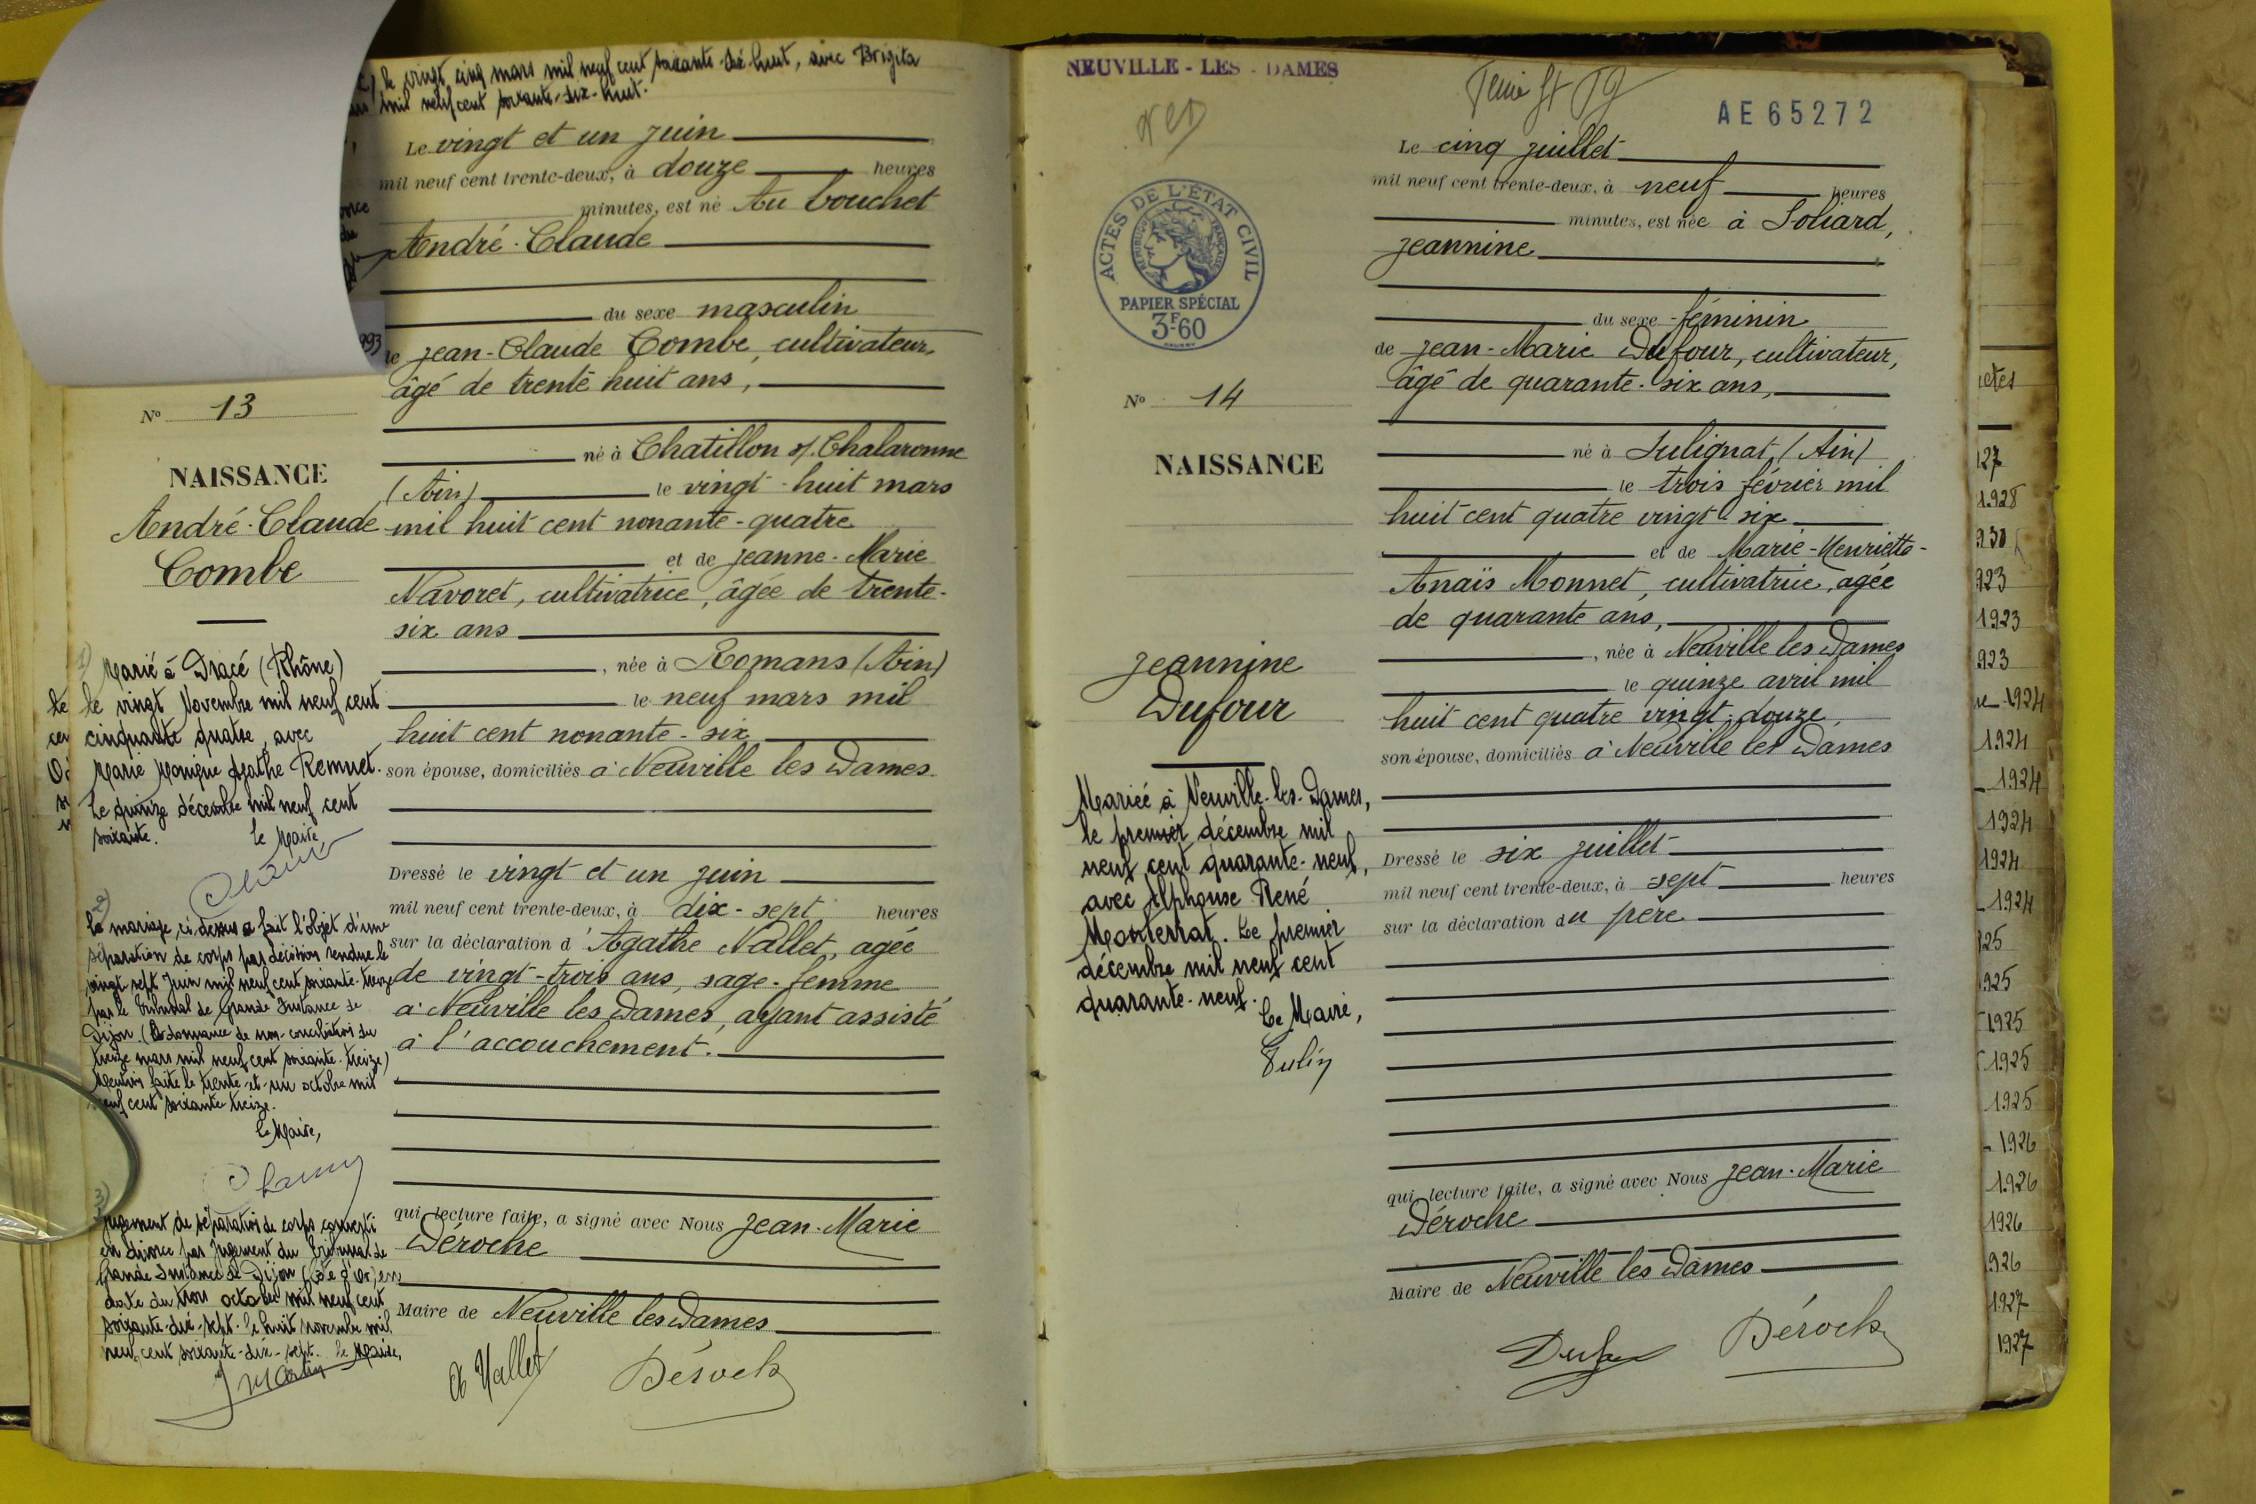 le vingt cinq mars mil neuf cent soixante-dix-huit, avec Brigita
mil neuf cent soixante-dix-huit.
Le vingt et un juin
mil neuf cent trente-deux, à douze heures
minutes, est né Au bouchet
André-Claude
du sexe masculin
de Jean-Claude Combe, cultivateur,
âgé de trente huit ans,
né à Chatillon s/. Chalaronne
(Ain) le vingt-huit mars
mil huit cent nonante-quatre
et de Jeanne-Marie
Navoret, cultivatrice, âgée de trente-
six ans
, née à Romans (Ain)
le neuf mars mil
huit cent nonante-six
son épouse, domiciliés à Neuville les Dames
Dressé le vingt et un juin
mil neuf cent trente-deux, à dix-sept heures
sur la déclaration d'Agathe Nallet, agée
de vingt-trois ans, sage-femme
à Neuville les Dames, ayant assisté
à l'accouchement.
qui lecture faite, a signé avec Nous Jean-Marie
Déroche
Maire de Neuville les Dames
Nallet
Déroche
993
N° 13
NAISSANCE
André-Claude
Combe
1)
Marié à Dracé (Rhône)
le vingt Novembre mil neuf cent
cinquante quatre, avec
Marie Monique Agathe Remuet.
Le quinze décembre mil neuf cent
soixante. Le Maire
2)
Le mariage ci-dessus a fait l'objet d'une
séparation de corps par décision rendue le
vingt sept Juin mil neuf cent soixante-treize
par le Tribunal de Grande Instance de
Dijon. (Ordonnance de non-conciliation du
treize mars mil neuf cent soixante-treize)
Mention faite le trente-et-un octobre mil
neuf cent soixante treize.
Le Maire,
3)
Jugement de séparation de corps converti
en divorce par jugement du Tribunal de
Grande Instance de Dijon (Côte d'Or) en
date du trois octobre mil neuf cent
soixante-dix-sept. le huit novembre mil
neuf cent soixante-dix-sept. le Maire,
NEUVILLE - LES - DAMES
AE 65272
ACTES DE L'ÉTAT CIVIL
RÉPUBLIQUE FRANÇAISE
PAPIER SPÉCIAL
3F-60
N° 14
NAISSANCE
Jeannine
Dufour
Mariée à Neuville-les-Dames,
le premier décembre mil
neuf cent quarante-neuf,
avec Alphonse René
Monterrat. Le premier
décembre mil neuf cent
quarante-neuf.
Le Maire,
Tulin
Le cinq juillet
mil neuf cent trente-deux, à neuf heures
minutes, est née à Soliard,
Jeannine
du sexe féminin
de Jean-Marie Dufour, cultivateur,
âgé de quarante-six ans,
né à Sulignat (Ain)
le trois février mil
huit cent quatre vingt-six
et de Marie-Henriette-
Anaïs Monnet, cultivatrice, agée
de quarante ans,
, née à Neuville les Dames
le quinze avril mil
huit cent quatre vingt-douze,
son épouse, domiciliés à Neuville les Dames
Dressé le six juillet
mil neuf cent trente-deux, à sept heures
sur la déclaration du père
qui lecture faite, a signé avec Nous Jean-Marie
Déroche
Maire de Neuville les Dames
Dufour
Déroche
1928
1923
1924
1924
1924
1924
1924
1924
1925
1925
1925
1925
1926
1926
1926
1927
1927